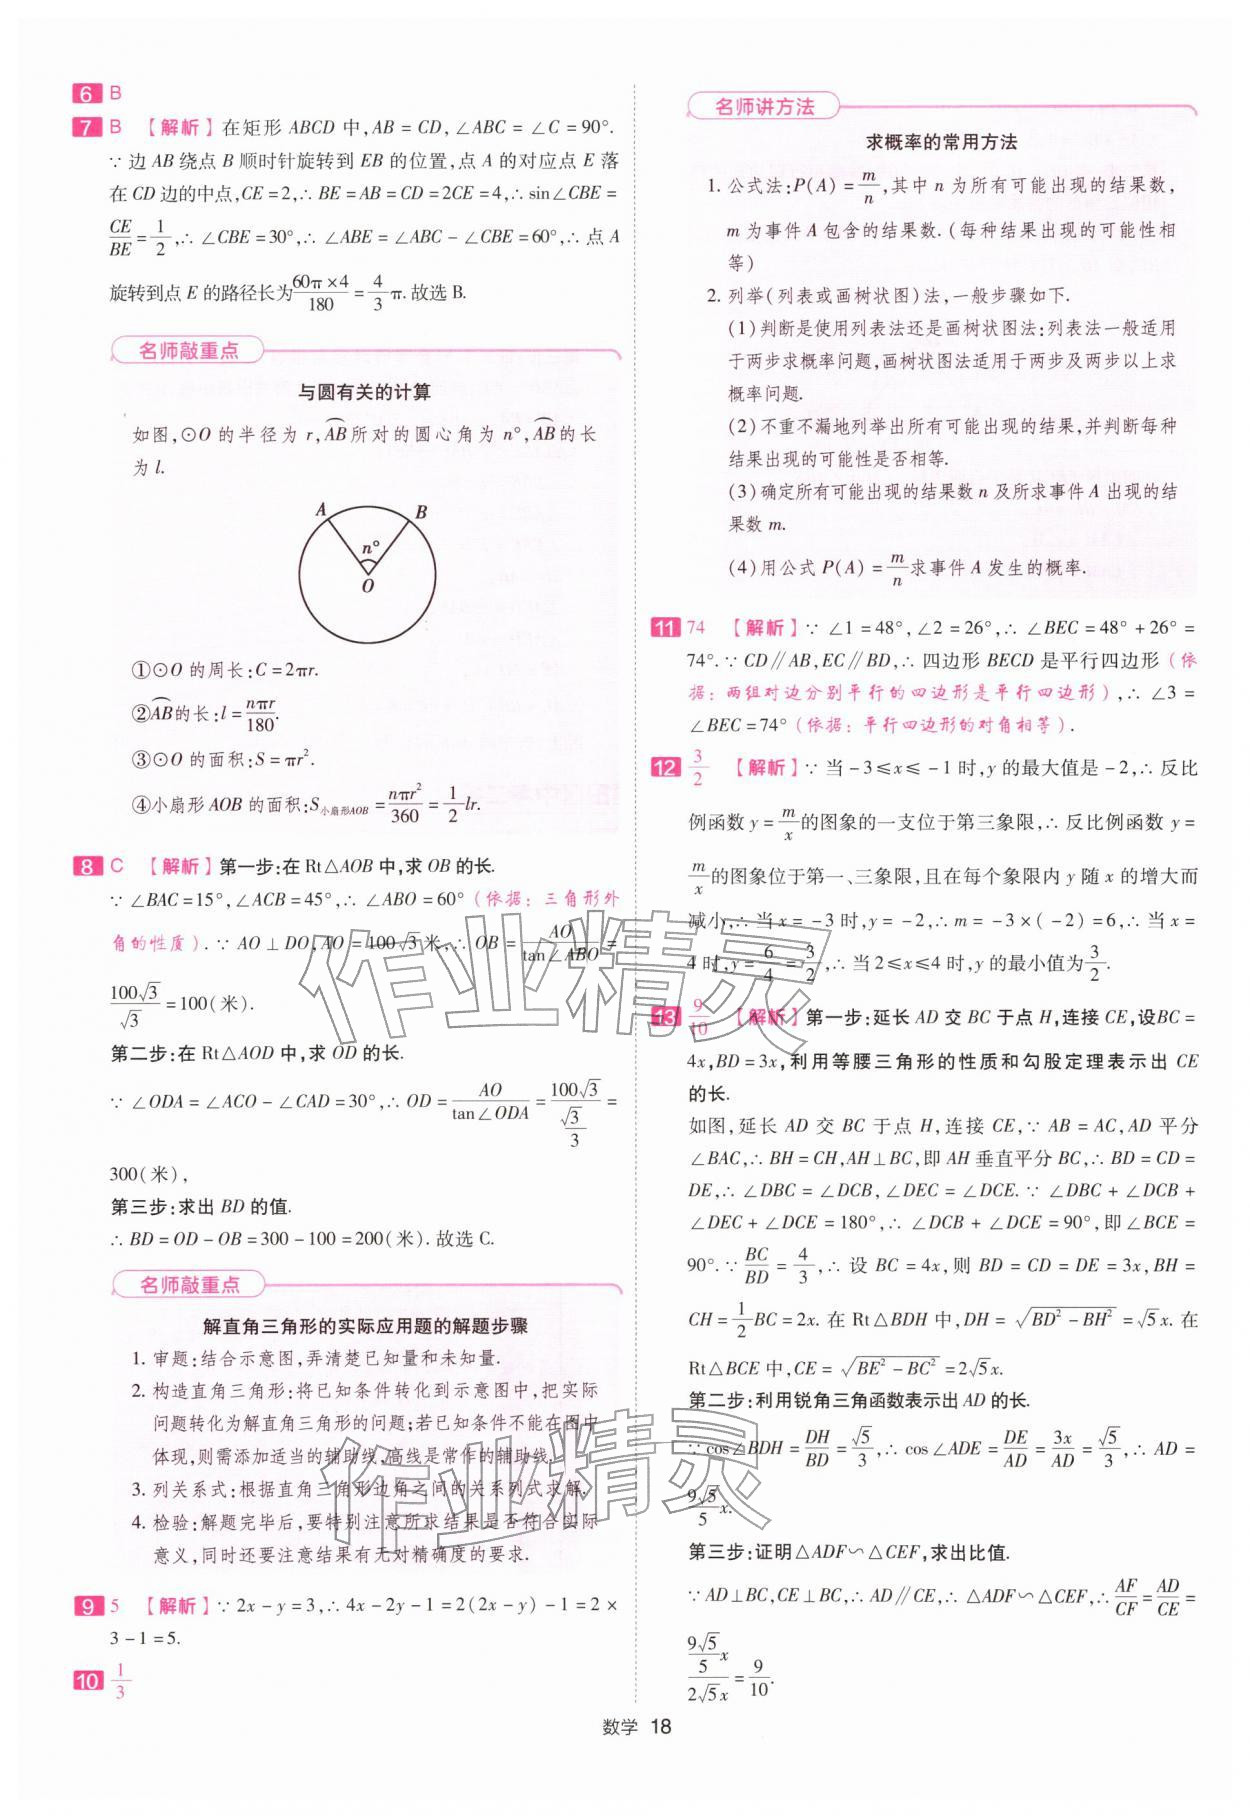 6 B
7 B 【解析】在矩形 ABCD 中,AB = CD,∠ABC = ∠C = 90°.
∵ 边 AB 绕点 B 顺时针旋转到 EB 的位置,点 A 的对应点 E 落
在 CD 边的中点,CE = 2,∴ BE = AB = CD = 2CE = 4,∴ sin∠CBE =
CE/BE = 1/2,∴ ∠CBE = 30°,∴ ∠ABE = ∠ABC - ∠CBE = 60°,∴ 点 A
旋转到点 E 的路径长为 60π×4/180 = 4/3 π. 故选 B.
名师敲重点
与圆有关的计算
如图,⊙O 的半径为 r,⌒AB所对的圆心角为 n°,⌒AB的长
为 l.
A B
n°
O
①⊙O 的周长:C = 2πr.
②⌒AB的长:l = nπr/180.
③⊙O 的面积:S = πr².
④小扇形 AOB 的面积:S小扇形AOB = nπr²/360 = 1/2 lr.
8 C 【解析】第一步:在 Rt△AOB 中,求 OB 的长.
∵ ∠BAC = 15°,∠ACB = 45°,∴ ∠ABO = 60°(依据:三角形外
角的性质). ∵ AO ⊥ DO,AO = 100√3 米,∴ OB = AO/tan∠ABO =
100√3/√3 = 100(米).
第二步:在 Rt△AOD 中,求 OD 的长.
∵ ∠ODA = ∠ACO - ∠CAD = 30°,∴ OD = AO/tan∠ODA = 100√3/(√3/3) =
300(米),
第三步:求出 BD 的值.
∴ BD = OD - OB = 300 - 100 = 200(米). 故选 C.
名师敲重点
解直角三角形的实际应用题的解题步骤
1. 审题:结合示意图,弄清楚已知量和未知量.
2. 构造直角三角形:将已知条件转化到示意图中,把实际
问题转化为解直角三角形的问题;若已知条件不能在图中
体现,则需添加适当的辅助线,高线是常作的辅助线.
3. 列关系式:根据直角三角形边角之间的关系列式求解.
4. 检验:解题完毕后,要特别注意所求结果是否符合实际
意义,同时还要注意结果有无对精确度的要求.
9 5 【解析】∵ 2x - y = 3,∴ 4x - 2y - 1 = 2(2x - y) - 1 = 2 ×
3 - 1 = 5.
10 1/3
名师讲方法
求概率的常用方法
1. 公式法:P(A) = m/n,其中 n 为所有可能出现的结果数,
m 为事件 A 包含的结果数. (每种结果出现的可能性相
等)
2. 列举(列表或画树状图)法,一般步骤如下.
(1)判断是使用列表法还是画树状图法:列表法一般适用
于两步求概率问题,画树状图法适用于两步及两步以上求
概率问题.
(2)不重不漏地列举出所有可能出现的结果,并判断每种
结果出现的可能性是否相等.
(3)确定所有可能出现的结果数 n 及所求事件 A 出现的结
果数 m.
(4)用公式 P(A) = m/n 求事件 A 发生的概率.
11 74 【解析】∵ ∠1 = 48°,∠2 = 26°,∴ ∠BEC = 48° + 26° =
74°. ∵ CD∥AB,EC∥BD,∴ 四边形 BECD 是平行四边形(依
据:两组对边分别平行的四边形是平行四边形),∴ ∠3 =
∠BEC = 74°(依据:平行四边形的对角相等).
12 3/2 【解析】∵ 当 -3 ≤ x ≤ -1 时,y 的最大值是 -2,∴ 反比
例函数 y = m/x 的图象的一支位于第三象限,∴ 反比例函数 y =
m/x 的图象位于第一、三象限,且在每个象限内 y 随 x 的增大而
减小,∴ 当 x = -3 时,y = -2,∴ m = -3 × (-2) = 6,∴ 当 x =
4 时,y = 6/4 = 3/2,∴ 当 2 ≤ x ≤ 4 时,y 的最小值为 3/2.
13 9/10 【解析】第一步:延长 AD 交 BC 于点 H,连接 CE,设BC =
4x,BD = 3x,利用等腰三角形的性质和勾股定理表示出 CE
的长.
如图,延长 AD 交 BC 于点 H,连接 CE,∵ AB = AC,AD 平分
∠BAC,∴ BH = CH,AH ⊥ BC,即 AH 垂直平分 BC,∴ BD = CD =
DE,∴ ∠DBC = ∠DCB,∠DEC = ∠DCE. ∵ ∠DBC + ∠DCB +
∠DEC + ∠DCE = 180°,∴ ∠DCB + ∠DCE = 90°,即∠BCE =
90°. ∵ BC/BD = 4/3,∴ 设 BC = 4x,则 BD = CD = DE = 3x,BH =
CH = 1/2 BC = 2x. 在 Rt△BDH 中,DH = √(BD² - BH²) = √5 x. 在
Rt△BCE 中,CE = √(BE² - BC²) = 2√5 x.
第二步:利用锐角三角函数表示出 AD 的长.
∵ cos∠BDH = DH/BD = √5/3,∴ cos∠ADE = DE/AD = 3x/AD = √5/3,∴ AD =
9√5/5 x.
第三步:证明△ADF∽△CEF,求出比值.
∵ AD⊥BC,CE⊥BC,∴ AD∥CE,∴ △ADF∽△CEF,∴ AF/CF = AD/CE =
(9√5/5 x)/(2√5 x) = 9/10.
作业精灵
作业精灵
数学 18